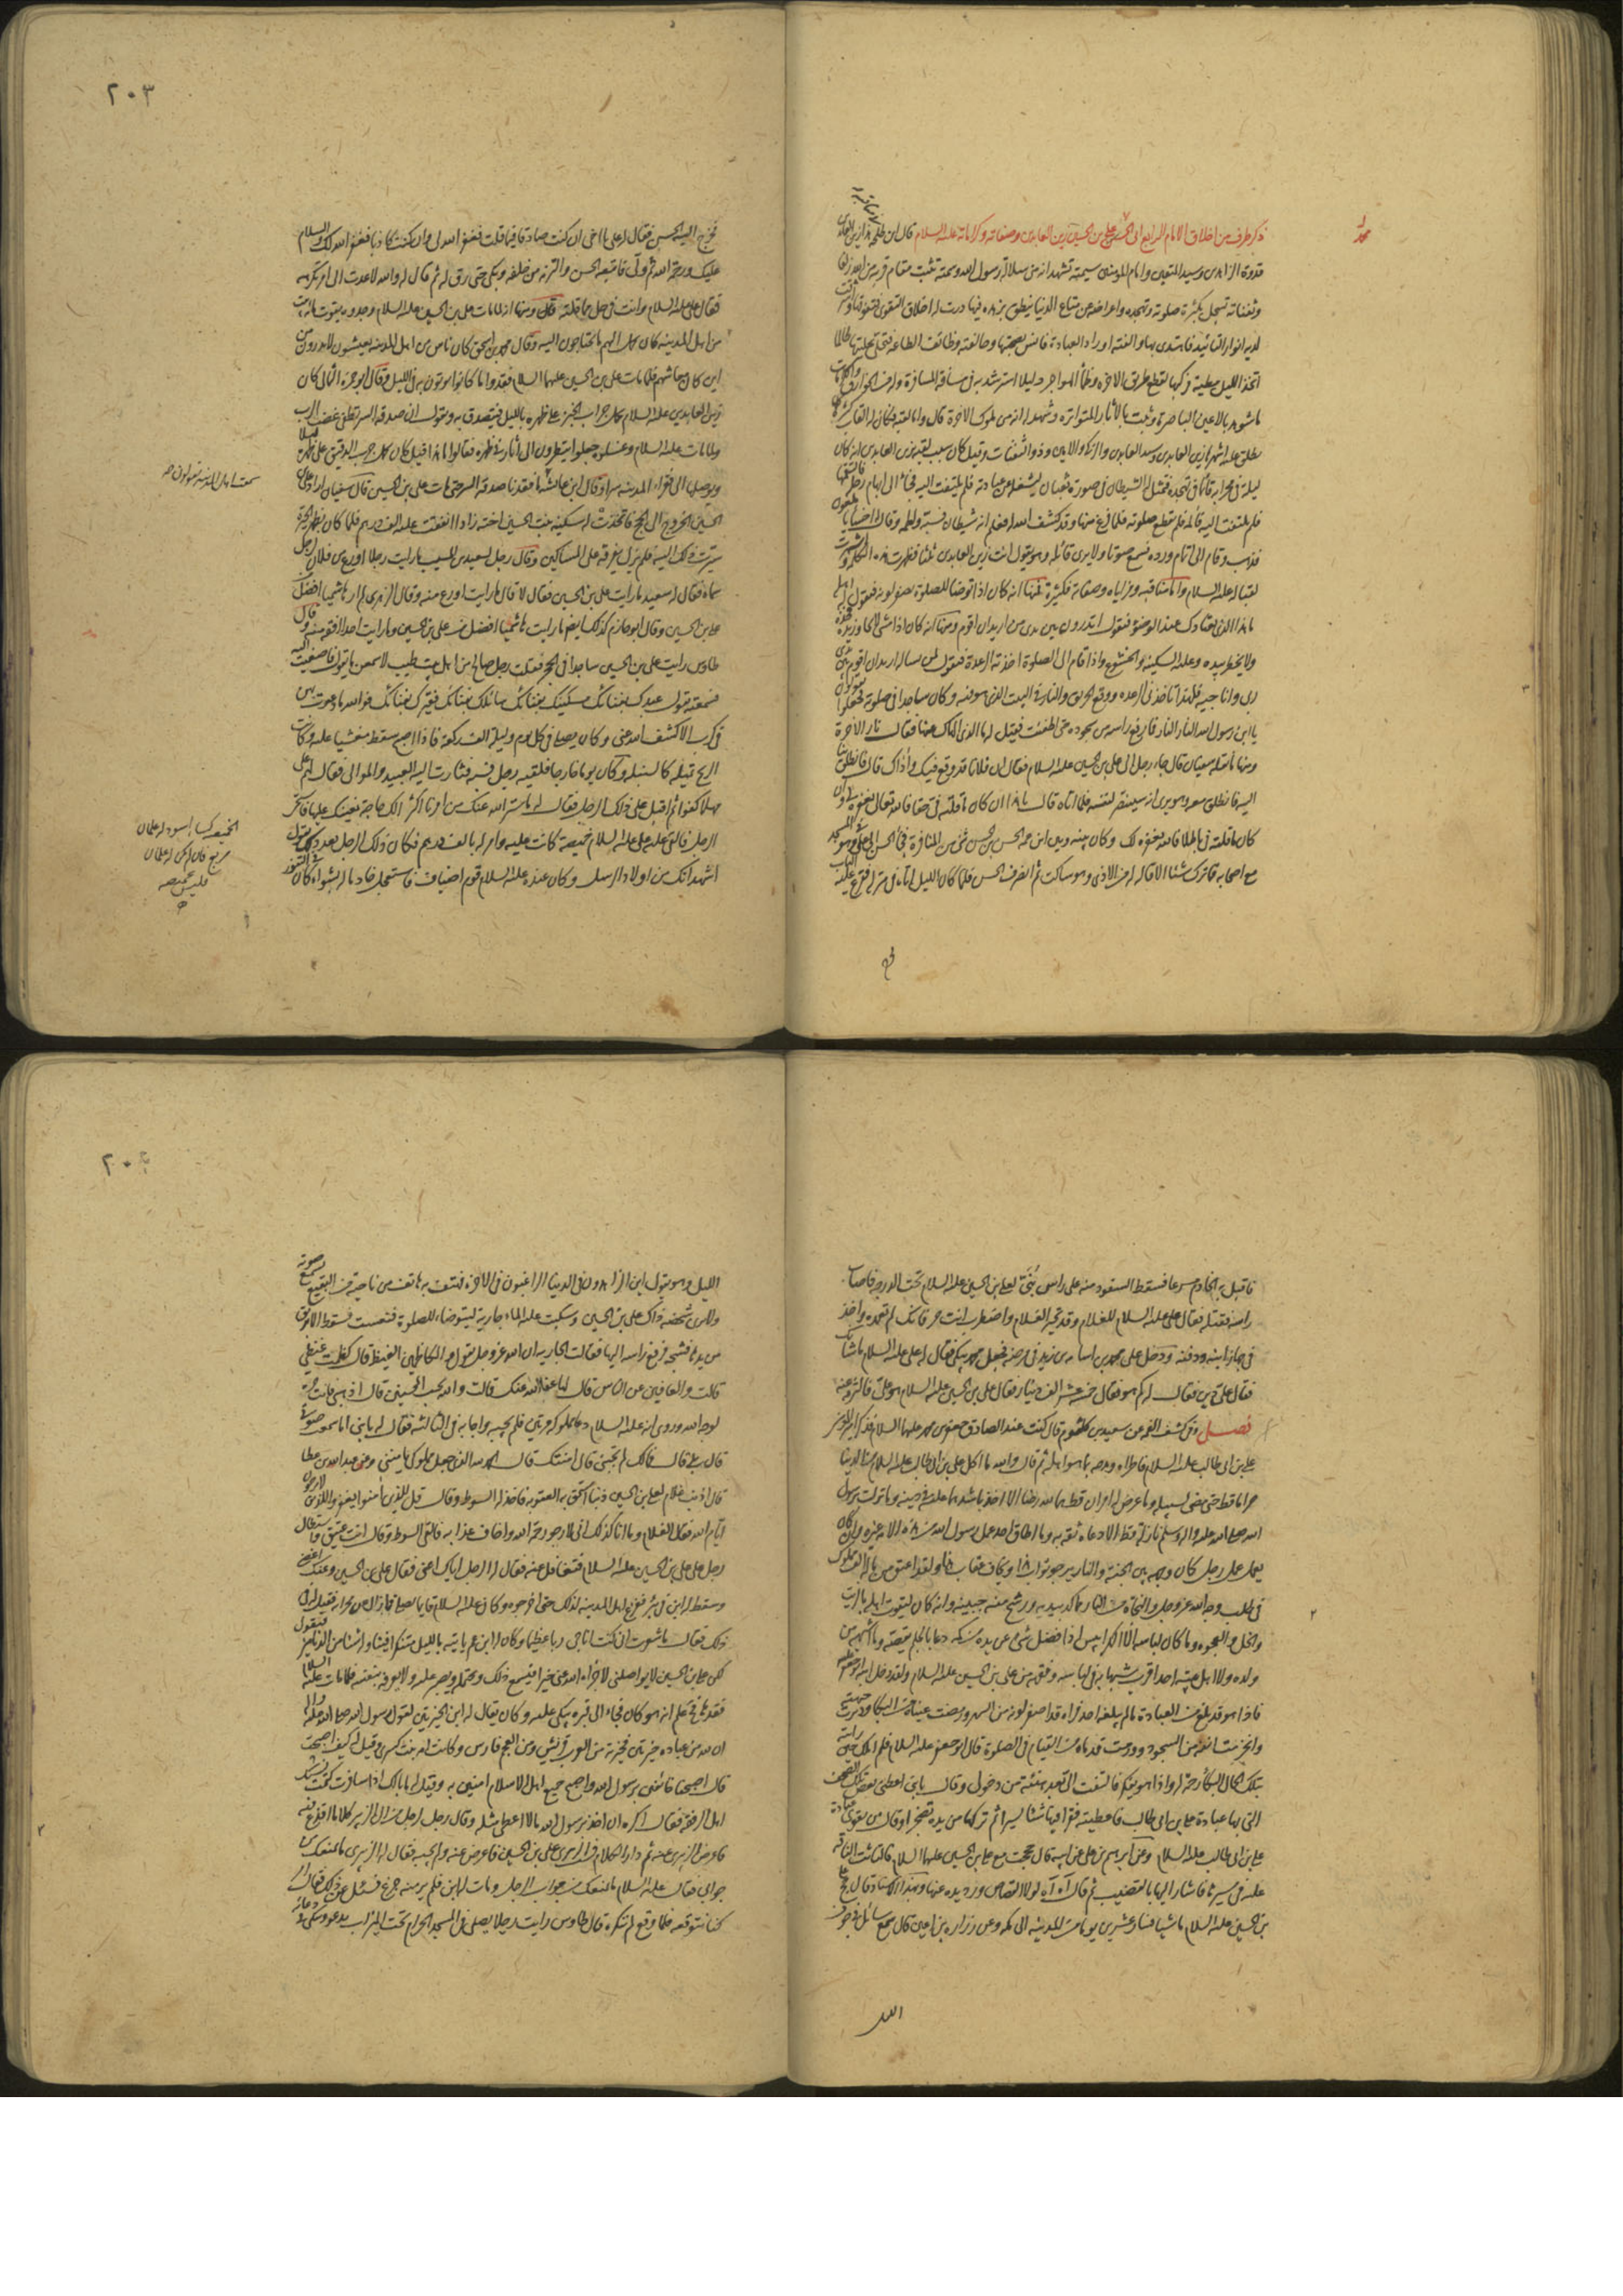 ذكر طرف من اخلاق الامام الرابع ابى الحسن على بن الحسين زين العابدين وصفاته وكراماته عليه السلام قال ابن طلحة هذا زين العابدين
قدوة الزاهدين وسيد المتقين وامام المومنين سيمته تشهد انه من سلالة رسول الله وسمته تثبت مقام قربه من الله زلفا
وثفناته تسجل بكثرة صلوته وتهجده واعراضه عن متاع الدنيا ينطق بزهده فيها درت له اخلاق التقوى فتفوقها واشرقت
لديه انوار التائيد فاهتدى بها والفته اوراد العبادة فانس بصحبتها وحالفته وظائف الطاعة فتحلى بحليتها طالما
اتخذ الليل مطية ركبها لقطع طريق الاخره وظمأ الهواجر دليلا استرشد به فى مسافة المسافرة وله من الخوارق والكرامات
ما شوهد بالاعين الباصرة وثبت بالاثار المتواتره وشهد له انه من ملوك الاخرة قال واما لقبه فكان له القاب كثيرة
ليلة فى محرابه قائما فى تهجده فتمثل له الشيطان فى صورة ثعبان ليشغله عن عبادته فلم يلتفت اليه فجاء الى ابهام رجله فالتقمها
فلم يلتفت اليه فآلمه فلم يقطع صلوته فلما فرغ منها وقد كشف الله له فعلم انه شيطان فسبه ولطمه وقال اخسأ يا ملعون
فذهب وقام الى اتمام ورده فسمع صوتا ولا يرى قائله وهو يقول انت زين العابدين ثلثا فظهرت هذه الكلمة واشتهرت
لقبا له عليه السلام واما مناقبه ومزاياه وصفاته فكثيرة فمنها انه كان اذا توضا للصلوة يصفر لونه فيقول له اهله
ما هذا الذى يعتادك عند الوضوء فيقول اتدرون بين يدى من اريد ان اقوم ومنها انه كان اذا مشى لا يجاوز يده فخذه
ولا يخطر بيده وعليه السكينة والخشوع واذا قام الى الصلوة اخذته الرعدة فيقول لمن يساله اريد ان اقوم بين يدى
ربى واناجيه فلهذا تاخذنى الرعده ووقع الحريق والنار فى البيت الذى هو فيه وكان ساجدا فى صلوته فجعلوا يقولون
يا ابن رسول الله النار النار فما رفع راسه من سجوده حتى اطفئت فقيل له ما الذى الهاك عنها فقال نار الاخرة
ومنها ما نقله سفيان قال جاء رجل الى على بن الحسين عليه السلام فقال ان فلانا قد وقع فيك واذاك قال فانطلق بنا
اليه فانطلق معه وهو يرى انه سينتصر لنفسه فلما اتاه قال يا هذا ان كان ما قلته فى حقا فالله تعالى يغفره لى وان
كان ما قلته فى باطلا فالله يغفره لك وكان بينه وبين ابن عمه الحسن بن الحسن شئ من المنافرة فجاء الحسن الى على وهو فى المسجد
مع اصحابه فما ترك شئا الا قاله له من الاذى وهو ساكت ثم انصرف الحسن فلما كان الليل اتاه فى منزله فقرع عليه الباب
٢٠٣
فخرج اليه الحسن فقال له على يا اخى ان كنت صادقا فيما قلت فغفر الله لى وان كنت كاذبا فغفر الله لك والسلام
عليك ورحمة الله ثم ولى فاتبعه الحسن والتزمه من خلفه وبكى حتى رق له ثم قال له والله لا عدت الى امر تكرهه
فقال على عليه السلام وانت فى حل مما قلته
ما يحتاجون اليه وقال محمد بن اسحق كان ناس من اهل المدينة يعيشون لا يدرون من
اين كان معاشهم فلما مات على بن الحسين عليهما السلام فقدوا ما كانوا يوتون به فى الليل وقال ابو حمزة الثمالى كان
زين العابدين عليه السلام يحمل جراب الخبز على ظهره بالليل فيتصدق به ويقول ان صدقة السر تطفئ غضب الرب
ولما مات عليه السلام وغسلوه جعلوا ينظرون الى اثار فى ظهره فقالوا ما هذا قيل كان يحمل جرب الدقيق على ظهره ليلا
ويوصلها الى فقراء المدينه سرا وقال ابن عائشة ما فقدنا صدقة السر حتى مات على بن الحسين قال سفيان اراد على بن
الحسين الخروج الى الحج فاتخذت له سكينة بنت الحسين اخته زادا انفقت عليه الف درهم فلما كان بظهر الحرة
سيرت ذلك اليه فلم يزل يفرقه على المساكين وقال رجل لسعيد بن المسيب ما رايت رجلا اورع من فلان لرجل
سماه فقال له سعيد ما رايت على بن الحسين فقال لا قال ما رايت اورع منه وقال الزهرى لم ار هاشميا افضل من
على بن الحسين وقال ابو حازم كذلك ايضا ما رايت هاشميا افضل من على بن الحسين وما رايت احدا افقه منه وقال
طاوس رايت على بن الحسين ساجدا فى الحجر فقلت رجل صالح من اهل بيت طيب لاسمعن ما يقول فاصغيت اليه
فسمعته يقول عبدك بفنائك مسكينك بفنائك سائلك بفنائك فقيرك بفنائك فوالله ما دعوت بهن
فى كرب الا كشف الله عنى وكان يصلى فى كل يوم وليلة الف ركعة فاذا اصبح سقط مغشيا عليه وكانت
الريح تميله كالسنبله وكان يوما خارجا فلقيه رجل فسبه فثارت اليه العبيد والموالى فقال لهم على
مهلا كفوا ثم اقبل على ذلك الرجل فقال له ما ستر الله عنك من امرنا اكثر الك حاجة نعينك عليها فاستحى
الرجل فالقى عليه على عليه السلام خميصة كانت عليه وامر له بالف درهم فكان ذلك الرجل بعد ذلك يقول
اشهد انك من اولاد الرسل وكان عنده عليه السلام قوم اضياف فاستعجل خادما له بشواء كان فى التنور
سمعت اهل المدينة يقولون صح
الخميصة كساء اسود له علمان
مربع فان لم يكن له علمان
فليس بخميصه
فاقبل به الخادم مسرعا فسقط السفود منه على راس بنى لعلى بن الحسين عليه السلام تحت الدرجة فاصاب
راسه فقتله فقال على عليه السلام للغلام وقد تحير الغلام واضطرب انت حر فانك لم تعمده واخذ
فى جهاز ابنه ودفنه ودخل على محمد بن اسامة بن زيد فى مرضه فجعل محمد يبكى فقال له على عليه السلام ما شانك
فقال على دين فقال له كم هو فقال خمسة عشر الف دينار فقال على بن الحسين عليه السلام هو على فالتزمه عنه
فصل وفى كشف الغمه عن سعيد بن كلثوم قال كنت عند الصادق جعفر بن محمد عليهما السلام فذكر امير المومنين
على بن ابى طالب عليه السلام فاطراه ومدحه بما هو اهله ثم قال والله ما اكل على بن ابى طالب عليه السلام من الدنيا
حراما قط حتى مضى لسبيله وما عرض له امران قط هما لله رضا الا اخذ باشدهما عليه فى دينه وما نزلت برسول
الله صلى الله عليه واله وسلم نازلة قط الا دعاه ثقة به وما اطاق احد عمل رسول الله من هذه الامة غيره وان كان
ليعمل عمل رجل كان وجهه بين الجنة والنار يرجو ثواب هذه ويخاف عقاب هذه ولقد اعتق من ماله الف مملوك
فى طلب وجه الله عز وجل والنجاة من النار مما كد بيديه ورشح منه جبينه وانه كان ليقوت اهله بالزيت
والخل والعجوه وما كان لباسه الا الكرابيس اذا فضل شئ عن يده من كمه دعا بالجلم فقصه وما اشبهه من
ولده ولا اهل بيته احد اقرب شبها به فى لباسه وفقهه من على بن الحسين عليه السلام ولقد دخل ابنه ابو جعفر عليه
فاذا هو قد بلغ من العبادة ما لم يبلغه احد فراه قد اصفر لونه من السهر ورمضت عيناه من البكاء ودبرت جبهته
وانخرمت انفه من السجود وورمت قدماه من القيام فى الصلوة قال ابو جعفر عليه السلام فلم املك حين رايته
بتلك الحال البكاء رحمة له واذا هو يفكر فالتفت الى بعد هنيئة من دخولى وقال يا بنى اعطنى بعض تلك الصحف
التى فيها عبادة على بن ابى طالب فاعطيته فقرا فيها شئا يسيرا ثم تركها من يده تضجرا وقال من يقوى على عبادة
على بن ابى طالب عليه السلام وعن ابرهيم بن على عن ابيه قال حججت مع على بن الحسين عليهما السلام فالتاثت الناقة
عليه فى سيرها فاشار اليها بالقضيب ثم قال آه آه لولا القصاص ورد يده عنها وبهذا الاسناد قال حج على
بن الحسين عليه السلام ماشيا فسار عشرين يوما من المدينه الى مكه وعن زراره بن اعين قال سمع سائل فى جوف
الليل
الليل وهو يقول اين الزاهدون فى الدنيا الراغبون فى الاخره فهتف به هاتف من ناحية من البقيع يسمع صوته
ولا يرى شخصه ذاك على بن الحسين وسكبت عليه الماء جارية ليتوضاء للصلوة فنعست فسقط الابريق
من يدها فشجه فرفع راسه اليها فقالت الجاريه ان الله عز وجل يقول والكاظمين الغيظ قال كظمت غيظى
قالت والعافين عن الناس قال لها عفا الله عنك قالت والله يحب المحسنين قال اذهبى فانت حرة
لوجه الله وروى انه عليه السلام دعا مملوكه مرتين فلم يجبه واجابه فى الثالثه فقال له يا بنى اما سمعت صوتى
قال بلى قال فمالك لم تجبنى قال امنتك قال الحمد لله الذى جعل مملوكى يامننى وعن عبد الله بن عطا
قال اذنب غلام لعلى بن الحسين ذنبا استحق به العقوبه فاخذ له السوط وقال قل للذين آمنوا يغفروا للذين لا يرجون
ايام الله فقال الغلام وما انا كذلك انى لارجو رحمة الله واخاف عذابه فالقى السوط وقال انت عتيق واستطال
رجل على على بن الحسين عليه السلام فتغافل عنه فقال له الرجل اياك اعنى فقال على بن الحسين وعنك اغضى
وسقط له ابن فى بئر ففزع اهل المدينه لذلك حتى اخرجوه وكان عليه السلام قائما يصلى فما زال عن محرابه فقيل له فى
ذلك فقال ما شعرت انى كنت اناجى ربا عظيما وكان له ابن عم ياتيه بالليل متنكرا فيناوله شئا من الدنانير فيقول
لكن على بن الحسين لا يواصلنى لا جزاه الله عنى خيرا فيسمع ذلك ويحتمله ويصبر عليه ولا يعرفه بنفسه فلما مات عليه السلام
فقدها فحينئذ علم انه هو كان فجاء الى قبره يبكى عليه وكان يقال له ابن الخيرتين لقول رسول الله صلى الله عليه واله
ان لله من عباده خيرتين فخيرته من العرب قريش ومن العجم فارس وكانت امه بنت كسرى وقيل له كيف اصبحت
قال اصبحنا خائفين برسول الله واصبح جميع اهل الاسلام امنين به وقيل له ما بالك اذا سافرت كتمت نسبك
اهل الرفقه فقال اكره ان اخذ برسول الله ما لا اعطى مثله وقال رجل لرجل من آل الزبير كلاما اقذع فيه
فاعرض الزبيرى عنه ثم دار الكلام فسب الزبيرى على بن الحسين فاعرض عنه ولم يجبه فقال له الزبيرى ما يمنعك من
جوابى فقال عليه السلام ما منعك من جواب الرجل ومات له ابن فلم ير منه جزع فسئل عن ذلك فقال امر
كنا نتوقعه فلما وقع لم ننكره قال طاوس رايت رجلا يصلى فى المسجد الحرام تحت الميزاب يدعو ويبكى فى دعائه